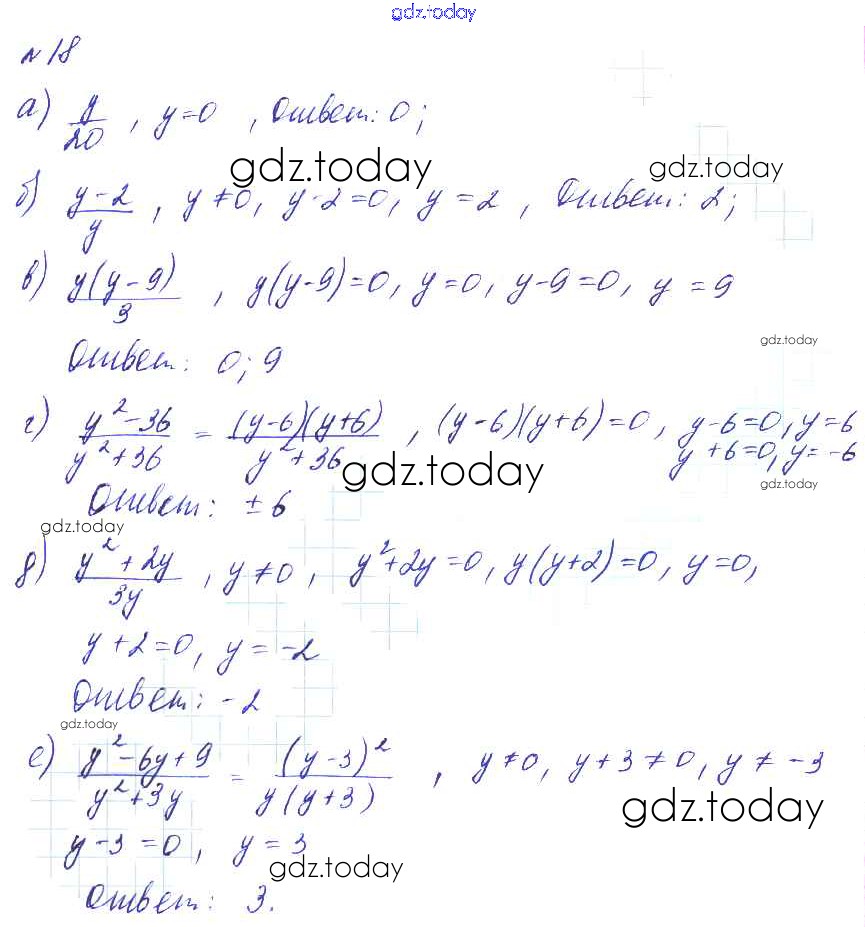 gdz.today
№ 18
а) y/20 , y=0 , Ответ: 0;
gdz.today gdz.today
б) (y-2)/y , y≠0, y-2=0, y=2 , Ответ: 2;
в) y(y-9)/3 , y(y-9)=0, y=0, y-9=0, y=9
gdz.today
Ответ: 0; 9
г) (y²-36)/(y²+36) = (y-6)(y+6)/(y²+36) , (y-6)(y+6)=0, y-6=0, y=6
y+6=0, y=-6
gdz.today gdz.today
Ответ: ±6
gdz.today
д) (y²+2y)/3y , y≠0, y²+2y=0, y(y+2)=0, y=0,
y+2=0, y=-2
Ответ: -2
gdz.today
е) (y²-6y+9)/(y²+3y) = (y-3)²/y(y+3) , y≠0, y+3≠0, y≠-3
gdz.today
y-3=0, y=3
gdz.today
Ответ: 3.